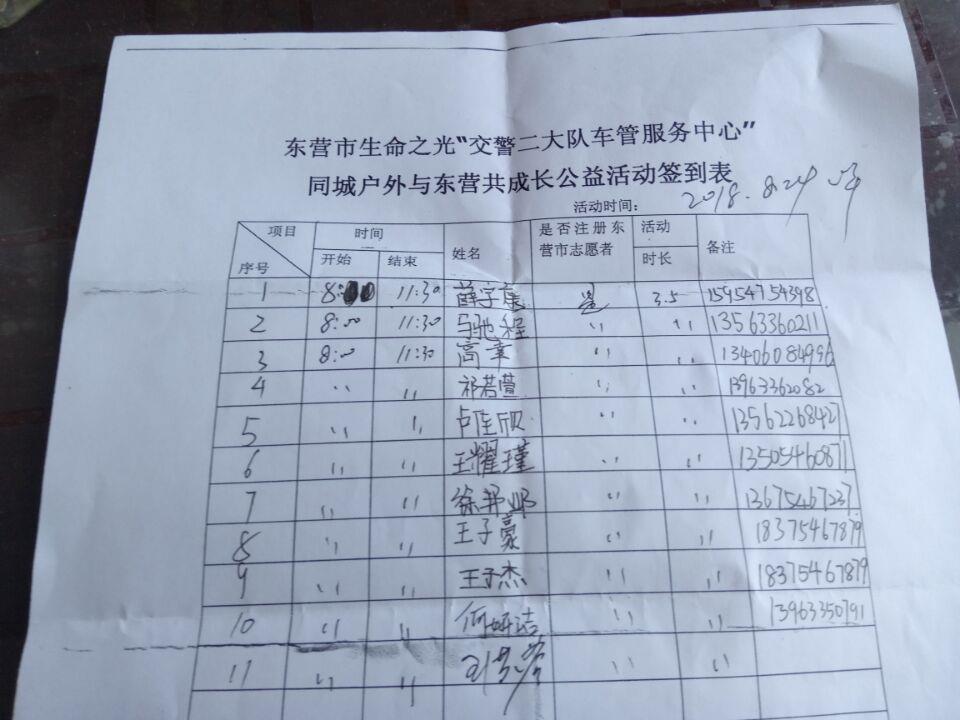 东营市生命之光“交警二大队车管服务中心”
同城户外与东营共成长公益活动签到表
活动时间： 2018.8.24
项目 时间 姓名 是否注册东营市志愿者 活动时长 备注
序号 开始 结束
1 8:00 11:30 薛字康 是 3.5 15954754398
2 8:00 11:30 马驰程 〃 〃 13563360211
3 8:00 11:30 高幸 〃 〃 13406084996
4 〃 〃 祁若萱 〃 〃 13963362082
5 〃 〃 卢佳欣 〃 〃 13562268427
6 〃 〃 王耀瑾 〃 〃 13505460871
7 〃 〃 徐邦邺 〃 〃 13675467237
8 〃 〃 王子豪 〃 〃 18375467879
9 〃 〃 王子杰 〃 〃 18375467879
10 〃 〃 何妍洁 〃 〃 13963350791
11 〃 〃 〃 〃